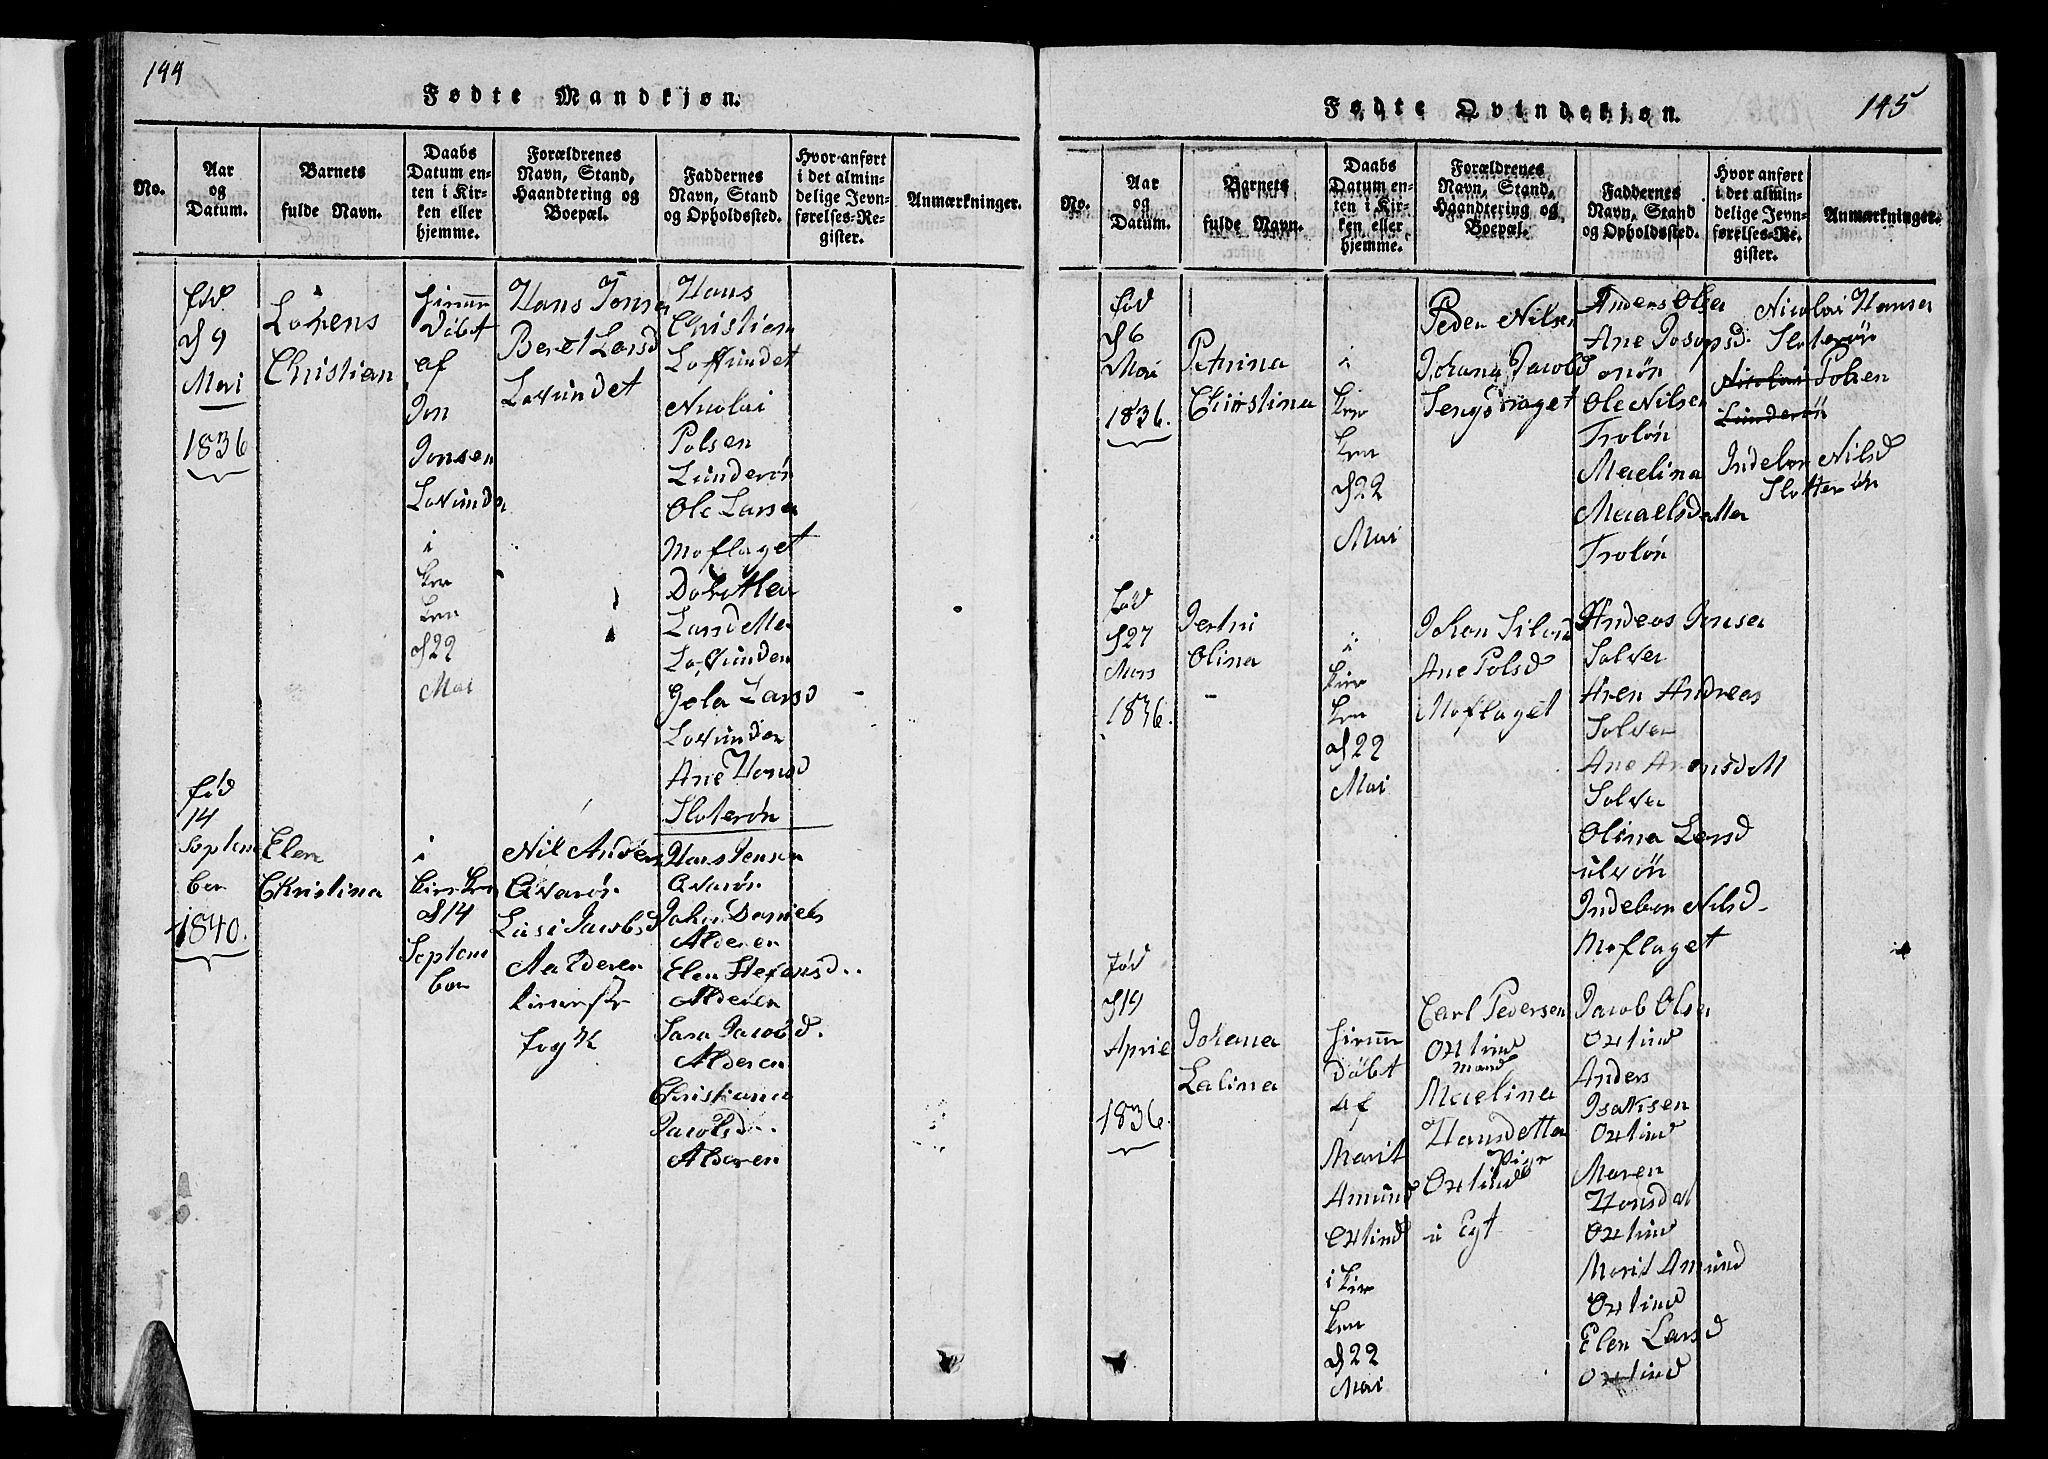 144
Fødte Mandkjøn.
No.
Aar
og
Datum.
Barnets
fulde Navn.
Daabs
Datum en-
ten i Kir-
ken eller
hjemme.
Forældrenes
Navn, Stand,
Haandtering og
Boepæl.
Faddernes
Navn, Stand
og Opholdssted.
Hvor anført
i det almin-
delige Jevn-
førelses-Re-
gister.
Anmærkninger.
fød
d 9
Mai
1836
Lorens
Christian
Døbt
af
Jon
Jonsen
Lovunde
i
kir
ken
d 22
Mai
Hans Jonsen
Beret Larsd
Lovundet
Hans
Christian
Lovundet
Nicolai
Polsen
Lunderøn
Ole Larsen
Moflaget
Dorothea
Larsdatter
Lovunden
Larsd
Lovunden
Ane Hansd
Sloterøn
fød
14
Septem
ber
1840.
Elen
Christina
i
kirken
d 14
Septem
ber
Nil Anders
Qvarør
Lusi Jacobsd
Aalderen
Hans Jensen
Qvarør
Johan Daniels
Alderen
Elen Stefansd
Alderen
Sara Jacobsd.
Alderen
Christiana
Jacobsd
Alderen
145
Fødte Qvindekjøn.
No.
Aar
og
Datum.
Barnets
fulde Navn.
Daabs
Datum en-
ten i Kir-
ken eller
hjemme.
Forældrenes
Navn, Stand,
Haandtering og
Boepæl.
Faddernes
Navn, Stand
og Opholdssted.
Hvor anført
i det almin-
delige Jevn-
førelses-Re-
gister.
Anmærkninger.
fød
d 6
Mai
1836.
Petrina
Christina
i
kir
ken
d 22
Mai
Peder Nilsen
Johana Jacobsd
Anders Olsen
Ane Josepsd.
onøn
Ole Nilsen
Troløn
Maelina
Micaelsdatter
Troløn
Nicolai Hansen
Sloterøn
Nicolai Polsen
Lunderøn
Indebor Nilsd
Slotterøn
fød
d 27
Mars
1836.
Jertru
Olina
i
kir
ken
d 22
Mai
Ane Polsd
Moflaget
Andeas Jensen
Solver
Aren Andreas
Solver
Ane Aronsdatt
Solver
Olina Larsd
ulvøn
Indebor Nilsd.
Moflaget
fød
d 19
April
1836.
Johana
Lalina
Døbt
af
Marit
Amund
Oxtind
i kir
ken
d 22
Mai
Carl Pedersen
Oxtind
mand
Maelina
Hansdatter
Pige
Oxtind
Jacob Olsen
Oxtind
Anders
Isaksen
Oxtind
Maren
Hansdat
Oxtind
Marit Amund
Oxtind
Elen Larsd
Oxtind